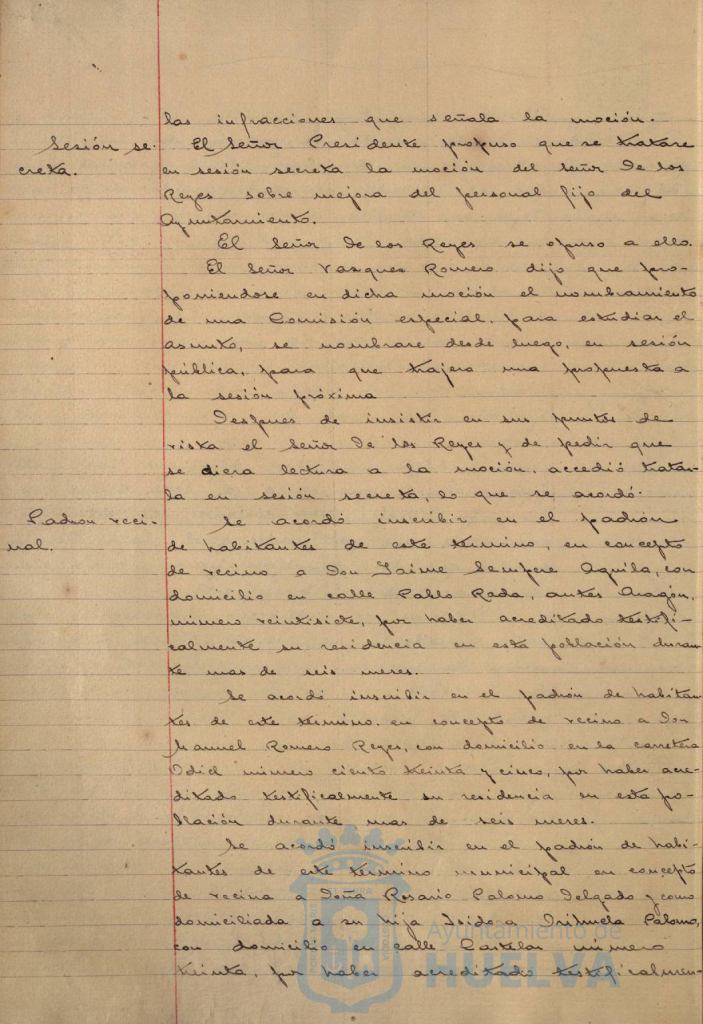 las infracciones que señala la moción.
Sesión se-
creta.
El Señor Presidente propuso que se tratase
en sesión secreta la moción del Señor De los
Reyes sobre mejora del personal fijo del
Ayuntamiento.
El Señor De los Reyes se opuso a ello.
El Señor Vazquez Romero dijo que pro-
poniendose en dicha moción el nombramiento
de una Comisión especial, para estudiar el
asunto, se nombrase desde luego, en sesión
pública, para que trajera una propuesta a
la sesión próxima
Despues de insistir en sus puntos de
vista el Señor De los Reyes y de pedir que
se diera lectura a la moción, accedió tratar-
la en sesión secreta, lo que se acordó.
Padron veci-
nal.
Se acordó inscribir en el padrón
de habitantes de este termino, en concepto
de vecino a Don Jaime Sempere Aguila, con
domicilio en calle Pablo Rada, antes Aragón,
número veintisiete, por haber acreditado testifi-
calmente su residencia en esta población duran-
te mas de seis meses.
Se acordó inscribir en el padrón de habitan-
tes de este termino, en concepto de vecino a Don
Manuel Romero Reyes, con domicilio en la carretera
Odiel número ciento treinta y cinco, por haber acre-
ditado testificalmente su residencia en esta po-
blación durante mas de seis meses.
Se acordó inscribir en el padrón de habi-
tantes de este termino municipal en concepto
de vecina a Doña Rosario Palomo Delgado y como
domiciliada a su hija Orihuela Palomo,
con domicilio en calle Castelar número
treinta, por haber acreditado testificalmen-
Ayuntamiento de
HUELVA